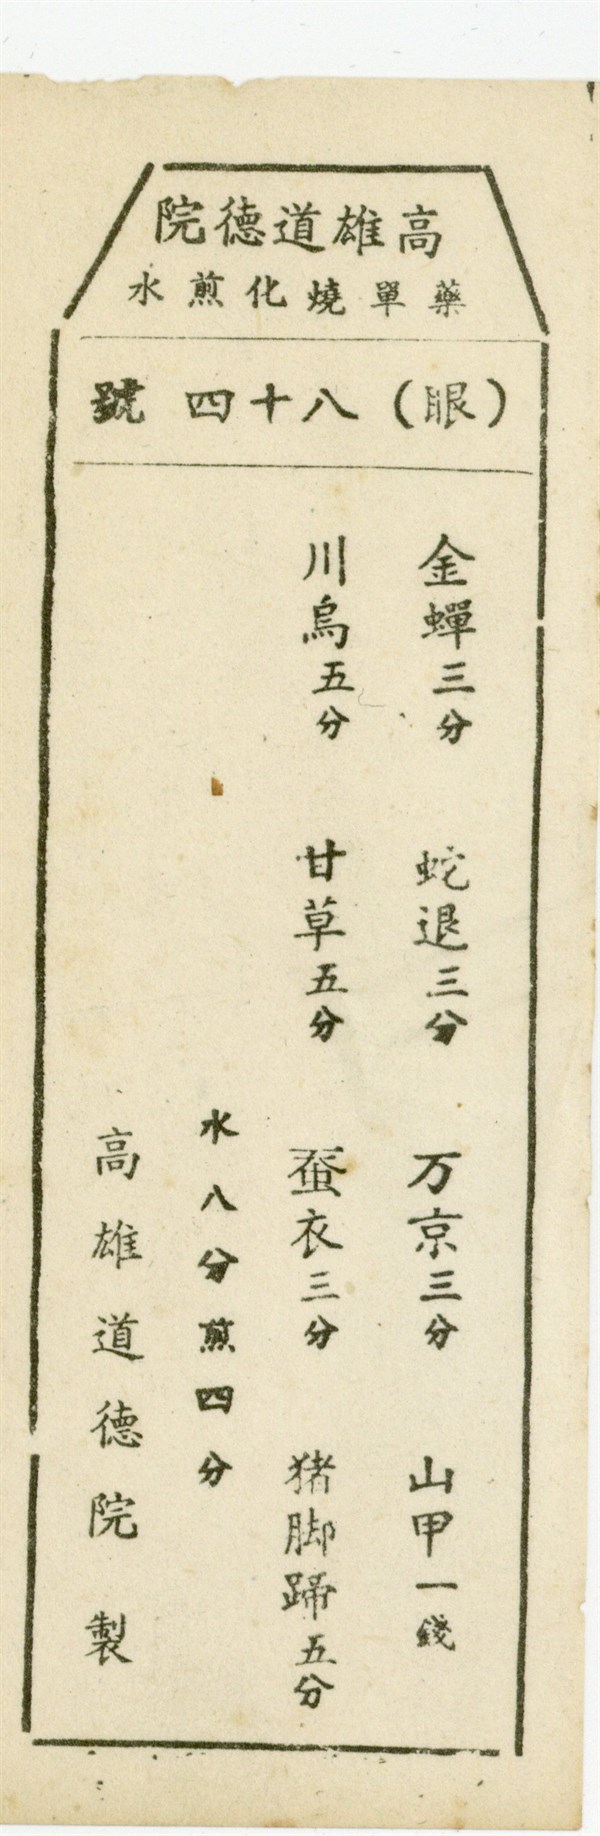 高雄道德院
藥單燒化煎水
（眼）八十四號
金蟬三分 蛇退三分 万京三分 山甲一錢
川烏五分 甘草五分 蚕衣三分 猪脚蹄五分
水八分煎四分
高雄道德院製